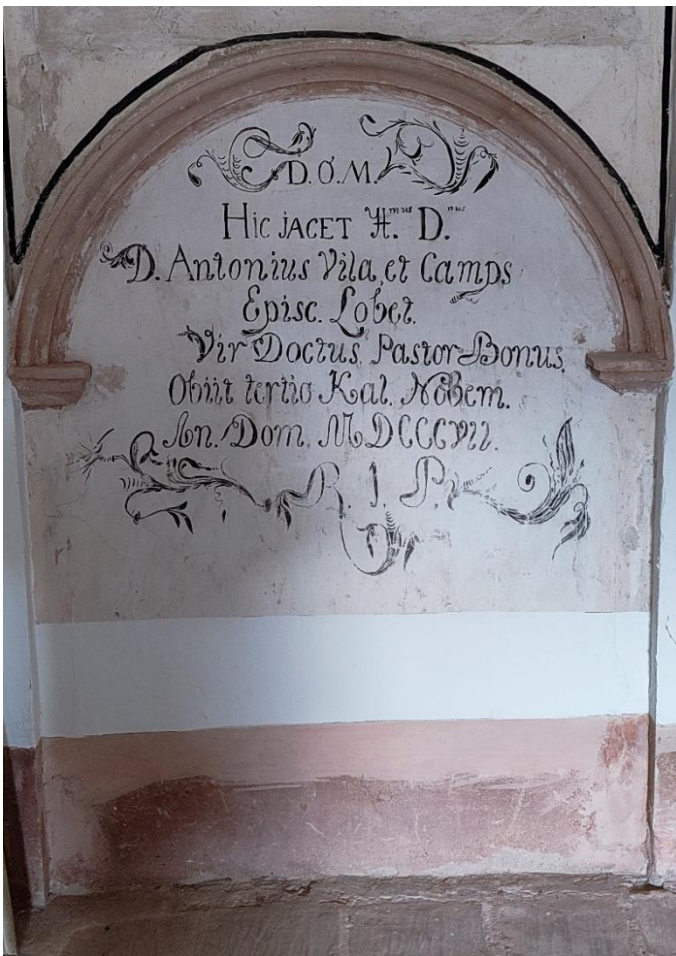 D.O.M.
Hic jacet Il.mus D.nus
D. Antonius Vila, et Camps
Episc. Lobet.
Vir Doctus, Pastor Bonus,
Obiit tertio Kal. Nobem.
An. Dom. MDCCCVII.
R. I. P.